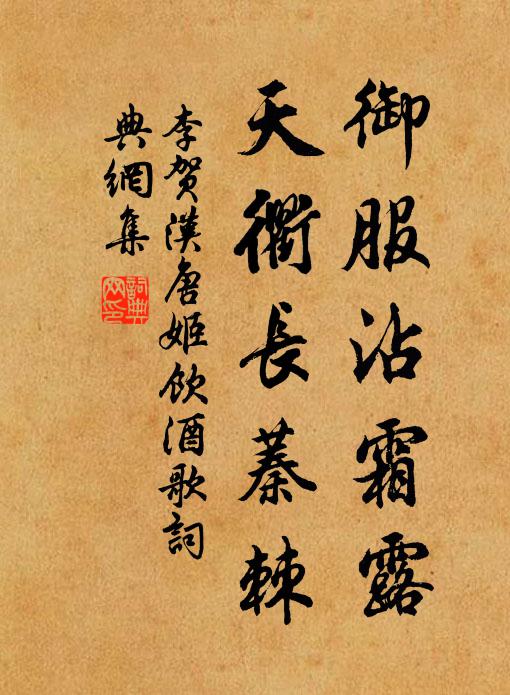 御服沾霜露
天衢長蓁棘
李賀漢唐姬飲酒歌詞
典網集
詞典
网印